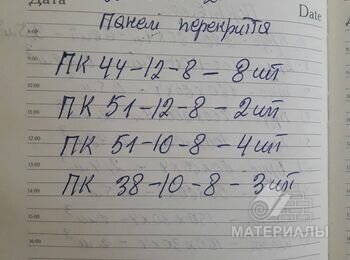 Дата
Date
Панелі перекриття
ПК 44-12-8 - 8 шт
ПК 51-12-8 - 2 шт
ПК 51-10-8 - 4 шт
ПК 38-10-8 - 3 шт
8:00
9:00
10:00
11:00
12:00
13:00
14:00
15:00
16:00
МАТЕРИАЛЫ